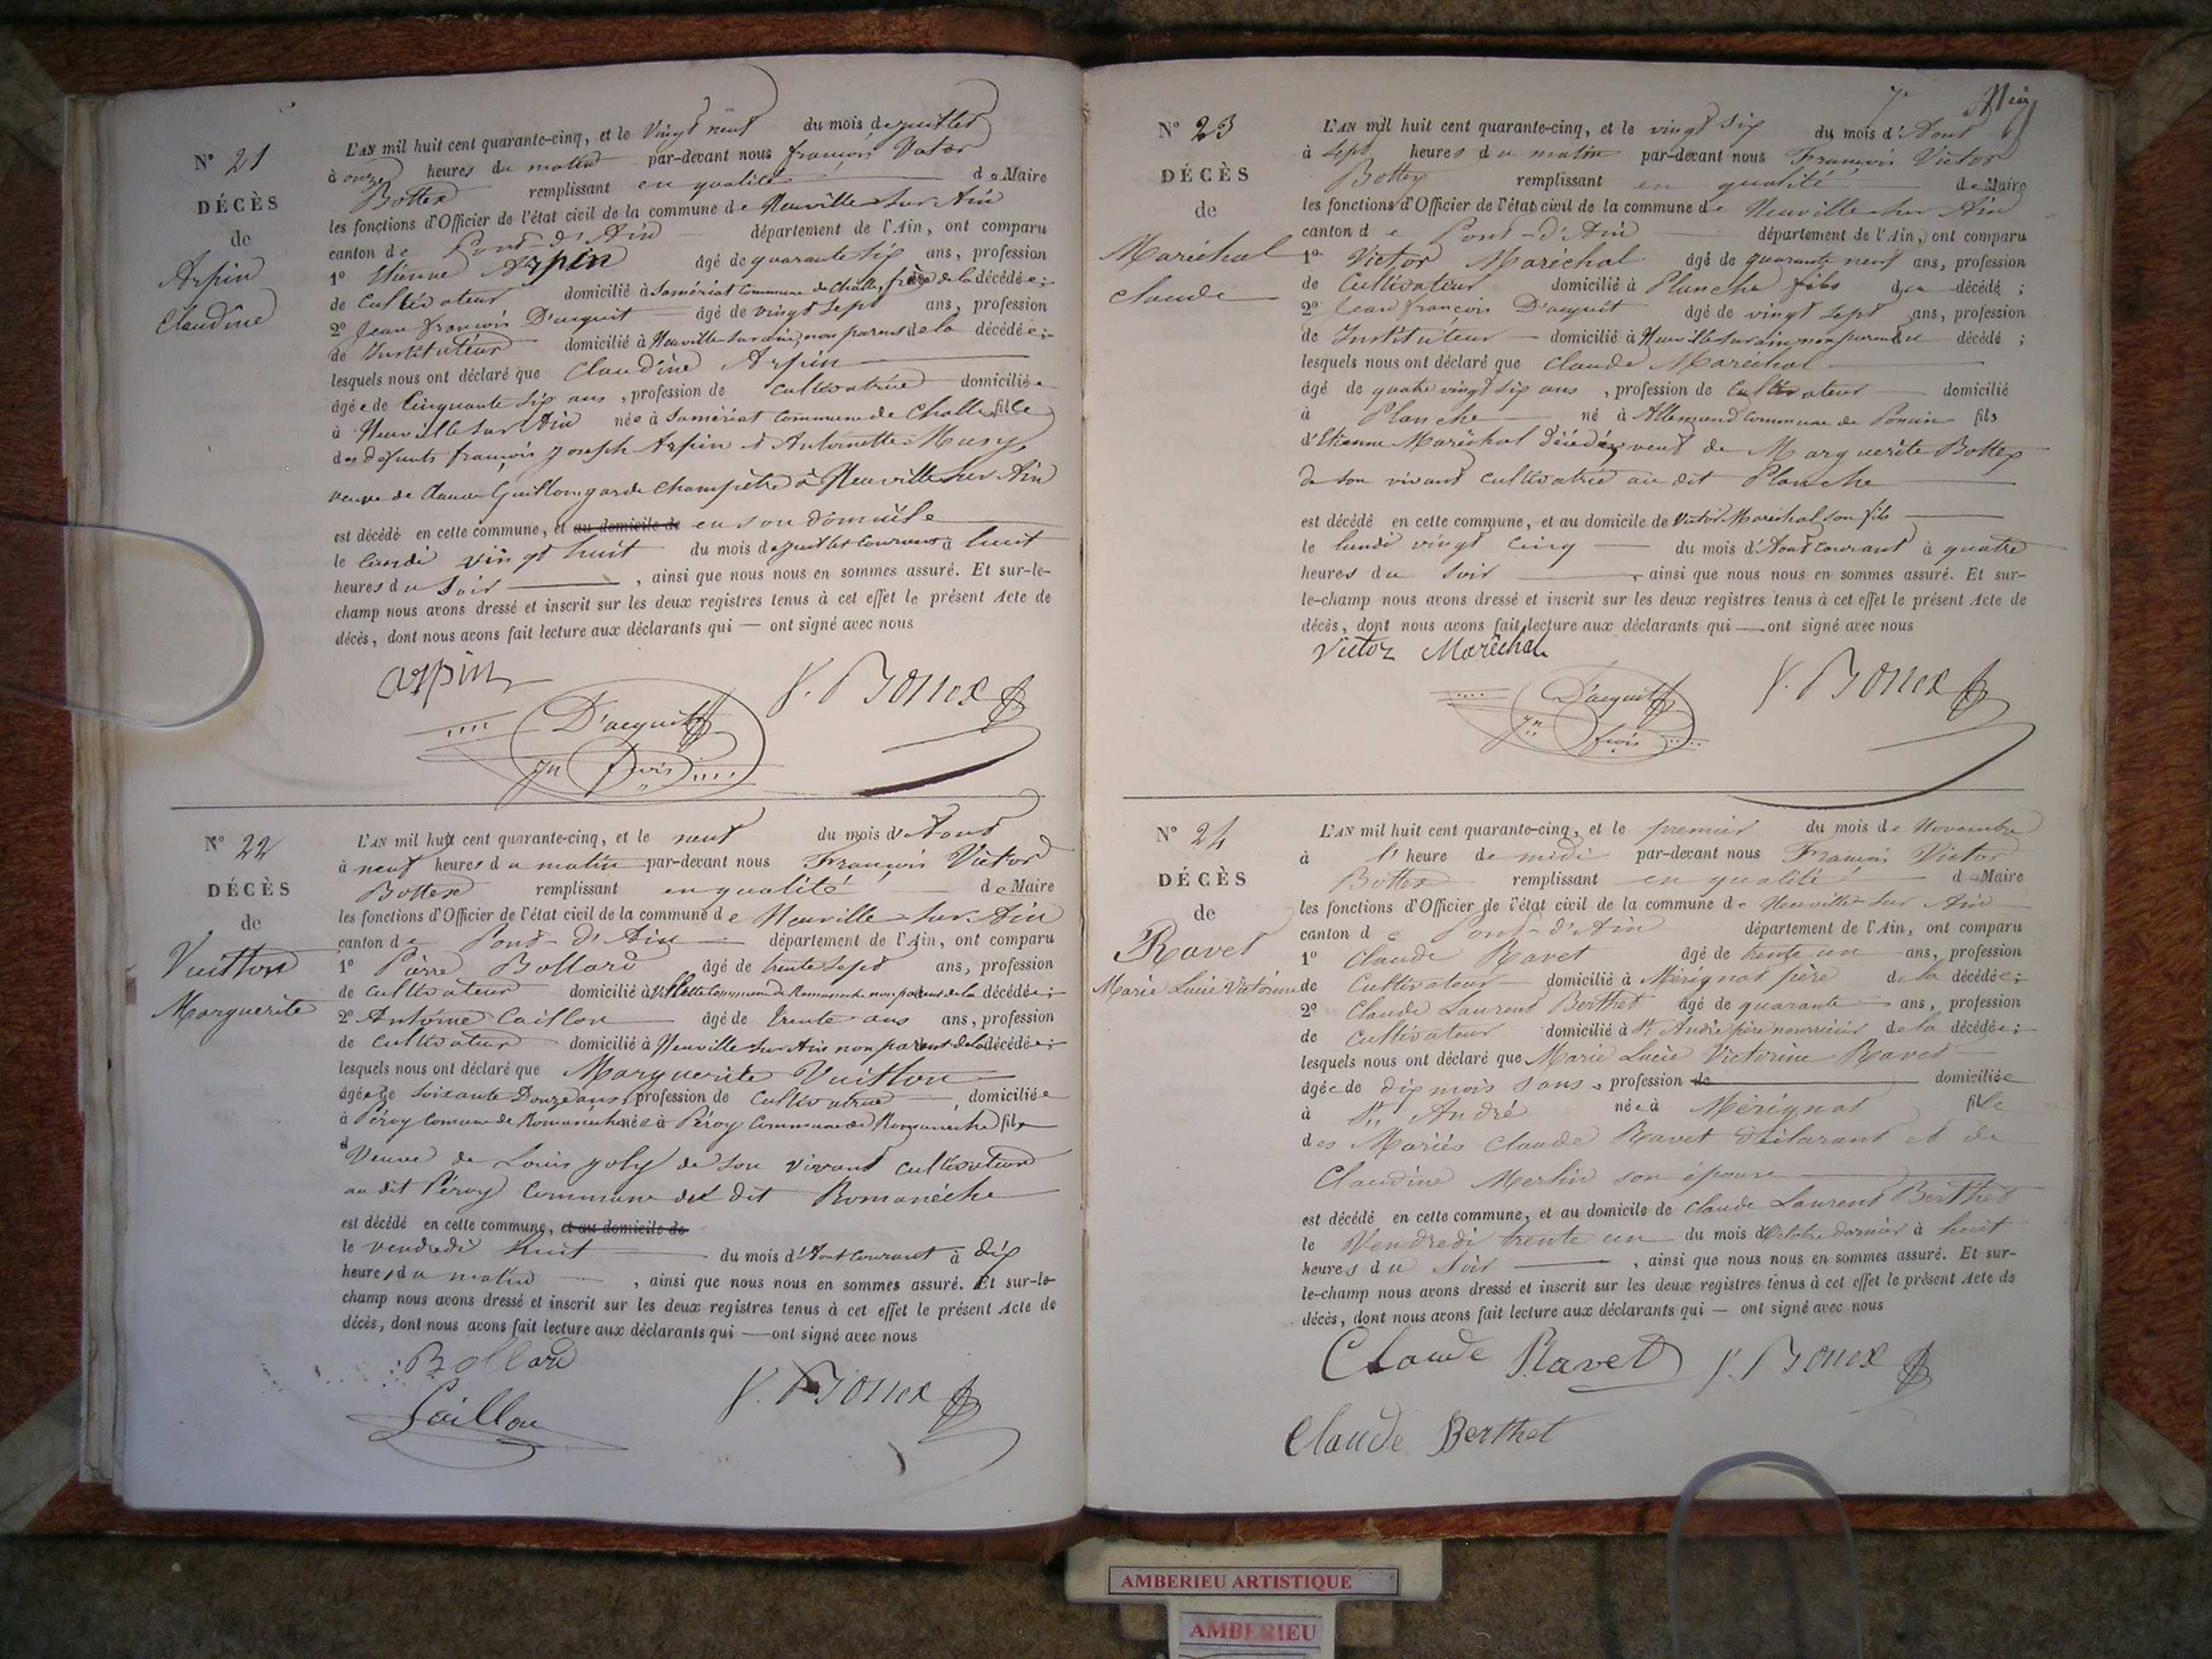 N° 21
DÉCÈS
de
Arpin
Claudine
L'AN mil huit cent quarante-cinq, et le vingt neuf du mois de juillet
à onze heures du matin par-devant nous françois Victor
Bottex remplissant en qualité de Maire
les fonctions d'Officier de l'état civil de la commune de Neuville sur Ain
canton de Pont-d'Ain département de l'Ain, ont comparu
1° Etienne Arpin âgé de quarante six ans, profession
de Cultivateur domicilié à Samériat commune de Challes, frère de la décédée;
2° Jean françois D'acquit âgé de vingt sept ans, profession
de Instituteur domicilié à Neuville sur ain, non parent de la décédée;
lesquels nous ont déclaré que Claudine Arpin
âgée de Cinquante six ans, profession de cultivatrice domiciliée
à Neuville sur Ain née à Samériat commune de Challes fille
des défunts françois joseph Arpin et Antoinette Musy,
veuve de Guillon garde champêtre à Neuville sur Ain
est décédé en cette commune, et au domicile de en son domicile
le lundi vingt huit du mois de juillet courant à huit
heures du soir, ainsi que nous nous en sommes assuré. Et sur-le-
champ nous avons dressé et inscrit sur les deux registres tenus à cet effet le présent Acte de
décès, dont nous avons fait lecture aux déclarants qui — ont signé avec nous
arpin
V. Bottex
D'acquit
jn fçois
N° 22
DÉCÈS
de
Vuitton
Marguerite
L'AN mil huit cent quarante-cinq, et le neuf du mois d'Aout
à neuf heures du matin par-devant nous François Victor
Bottex remplissant en qualité de Maire
les fonctions d'Officier de l'état civil de la commune de Neuville sur Ain
canton de Pont-d'Ain département de l'Ain, ont comparu
1° Pierre Bollard âgé de trente sept ans, profession
de cultivateur domicilié à commune de Romanèche non parent de la décédée;
2° Antoine Caillon âgé de trente ans ans, profession
de cultivateur domicilié à Neuville sur Ain non parent de la décédée;
lesquels nous ont déclaré que Marguerite Vuitton
âgée de soixante Douze ans, profession de cultivatrice, domiciliée
à Péroy comune de Romanèche née à Péroy commune de Romanèche fille
d
Veuve de Louis joly de son vivant cultivateur
au dit Péroy commune du dit Romanèche
est décédé en cette commune, et au domicile de
le vendredi huit du mois d'Aout courant à dix
heures du matin, ainsi que nous nous en sommes assuré. Et sur-le-
champ nous avons dressé et inscrit sur les deux registres tenus à cet effet le présent Acte de
décès, dont nous avons fait lecture aux déclarants qui — ont signé avec nous
Bollard
V. Bottex
Caillon
7e
N° 23
DÉCÈS
de
Maréchal
claude
L'AN mil huit cent quarante-cinq, et le vingt six du mois d'Aout
à sept heures du matin par-devant nous François Victor
Bottex remplissant en qualité de Maire
les fonctions d'Officier de l'état civil de la commune de Neuville sur Ain
canton de Pont-d'Ain département de l'Ain, ont comparu
1° Victor Maréchal âgé de quarante neuf ans, profession
de Cultivateur domicilié à Planche fils du décédé;
2° Jean françois D'acquit âgé de vingt sept ans, profession
de Instituteur domicilié à Neuville sur ain, non parent du décédé;
lesquels nous ont déclaré que claude Maréchal
âgé de quatre vingt six ans, profession de cultivateur domicilié
à Planche né à Allemand commune de Poncin fils
d'Etienne Maréchal décédé, veuf de Marguerite Bottex
de son vivant cultivatrice au dit Planche
est décédé en cette commune, et au domicile de Victor Maréchal son fils
le lundi vingt cinq du mois d'Aout courant à quatre
heures du soir, ainsi que nous nous en sommes assuré. Et sur-
le-champ nous avons dressé et inscrit sur les deux registres tenus à cet effet le présent Acte de
décès, dont nous avons fait lecture aux déclarants qui — ont signé avec nous
Victor Maréchal
V. Bottex
D'acquit
jn fçois
N° 24
DÉCÈS
de
Ravet
Marie Lucie Victorine
L'AN mil huit cent quarante-cinq, et le premier du mois de Novembre
à l'heure de midi par-devant nous François Victor
Bottex remplissant en qualité de Maire
les fonctions d'Officier de l'état civil de la commune de Neuville sur Ain
canton de Pont-d'Ain département de l'Ain, ont comparu
1° Claude Ravet âgé de trente un ans, profession
de Cultivateur domicilié à Mérignat père de la décédée;
2° Claude Laurent Berthet âgé de quarante ans, profession
de cultivateur domicilié à St. André père nourricier de la décédée;
lesquels nous ont déclaré que Marie Lucie Victorine Ravet
âgée de dix mois sans, profession de domiciliée
à St. André née à Mérignat fille
des Mariés Claude Ravet déclarant et de
Claudine Merlin son épouse
est décédé en cette commune, et au domicile de Claude Laurent Berthet
le Vendredi trente un du mois d'Octobre dernier à huit
heures du soir, ainsi que nous nous en sommes assuré. Et sur-
le-champ nous avons dressé et inscrit sur les deux registres tenus à cet effet le présent Acte de
décès, dont nous avons fait lecture aux déclarants qui — ont signé avec nous
Claude Ravet V. Bottex
Claude Berthet
AMBERIEU ARTISTIQUE
AMBERIEU